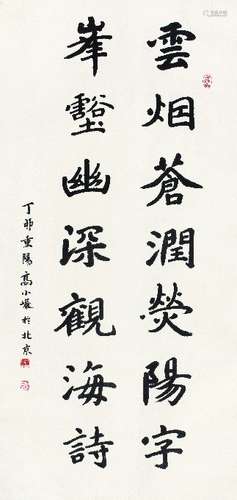 雲烟蒼潤熒陽字
峯壑幽深觀海詩
丁卯重陽高小岩於北京